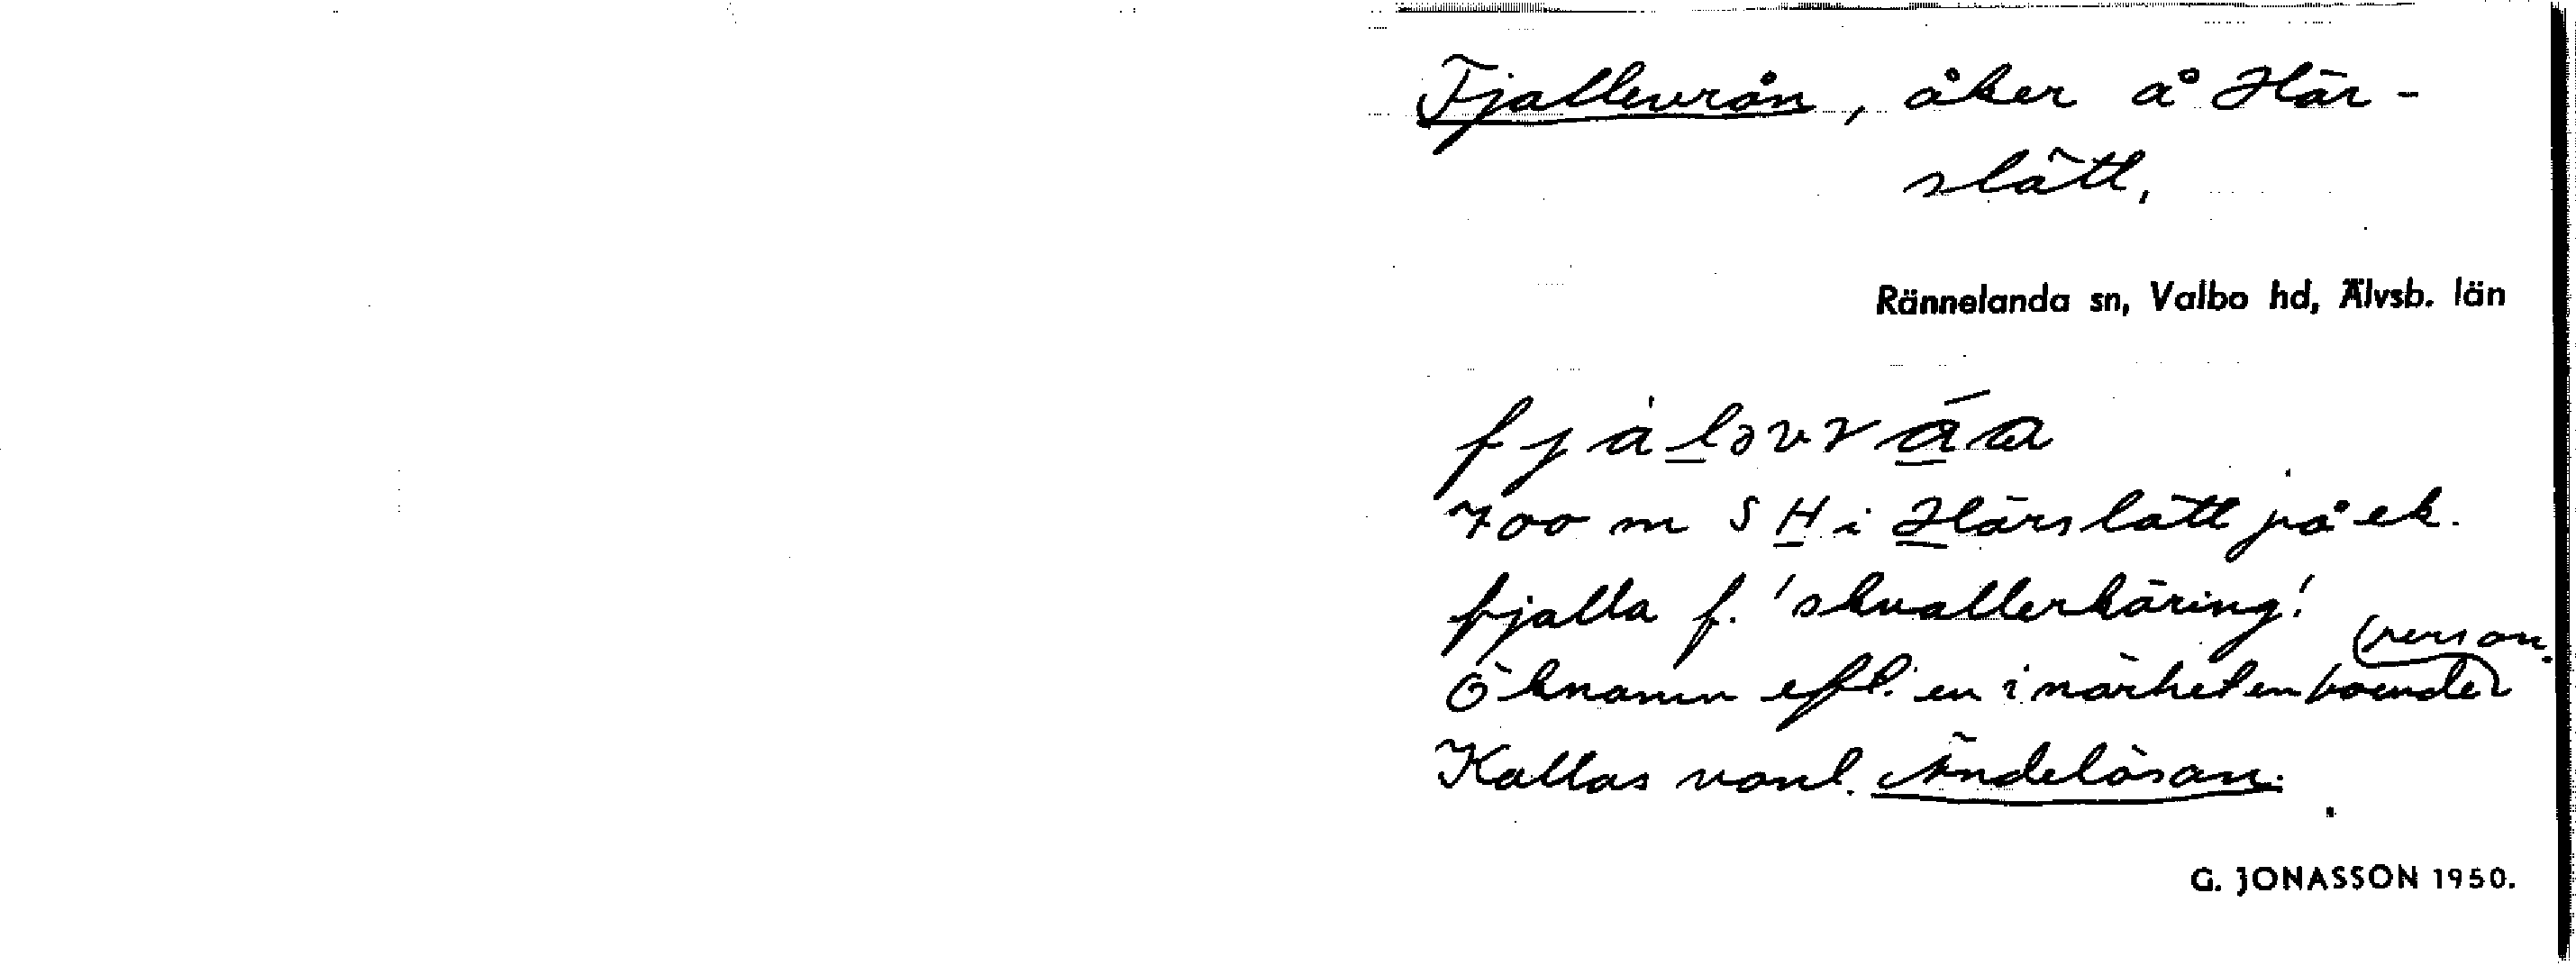 Fjallevrån, åker å Här-
slätt,
Rännelanda sn, Valbo hd, Älvsb. län
700 m S H i Härslätt på ek.
fjalla f. 'skvallerkäring'.
Öknamn eft. en i närheten boende person.
Kallas vanl. Ändelösan.
G. JONASSON 1950.